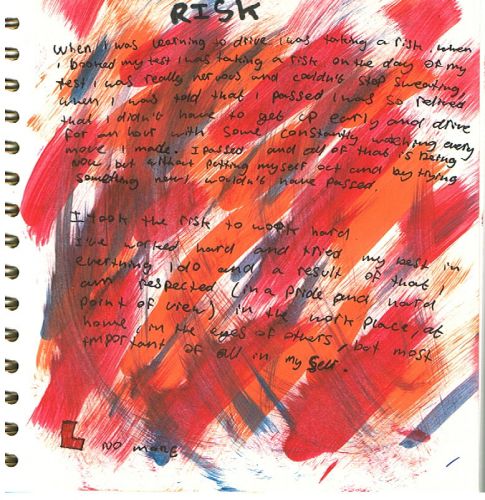 RISK
When I was learning to drive I was taking a risk. when
I booked my test I was taking a risk. on the day of my
test I was really nervous and couldn't stop sweating,
when I was told that I passed I was so relived
that I didn't have to get up early and drive
for an hour with some constantly watching every
move I made. I passed and all of that is being
now, but without putting myself out and by trying
something new I wouldn't have passed.
I took the risk to work hard
I've worked hard and tried my best in
everything I do and a result of that I
am respected (in a pride and hard
point of view) in the work place, at
home, in the eyes of others, but most
important of all in my self.
L NO MORE